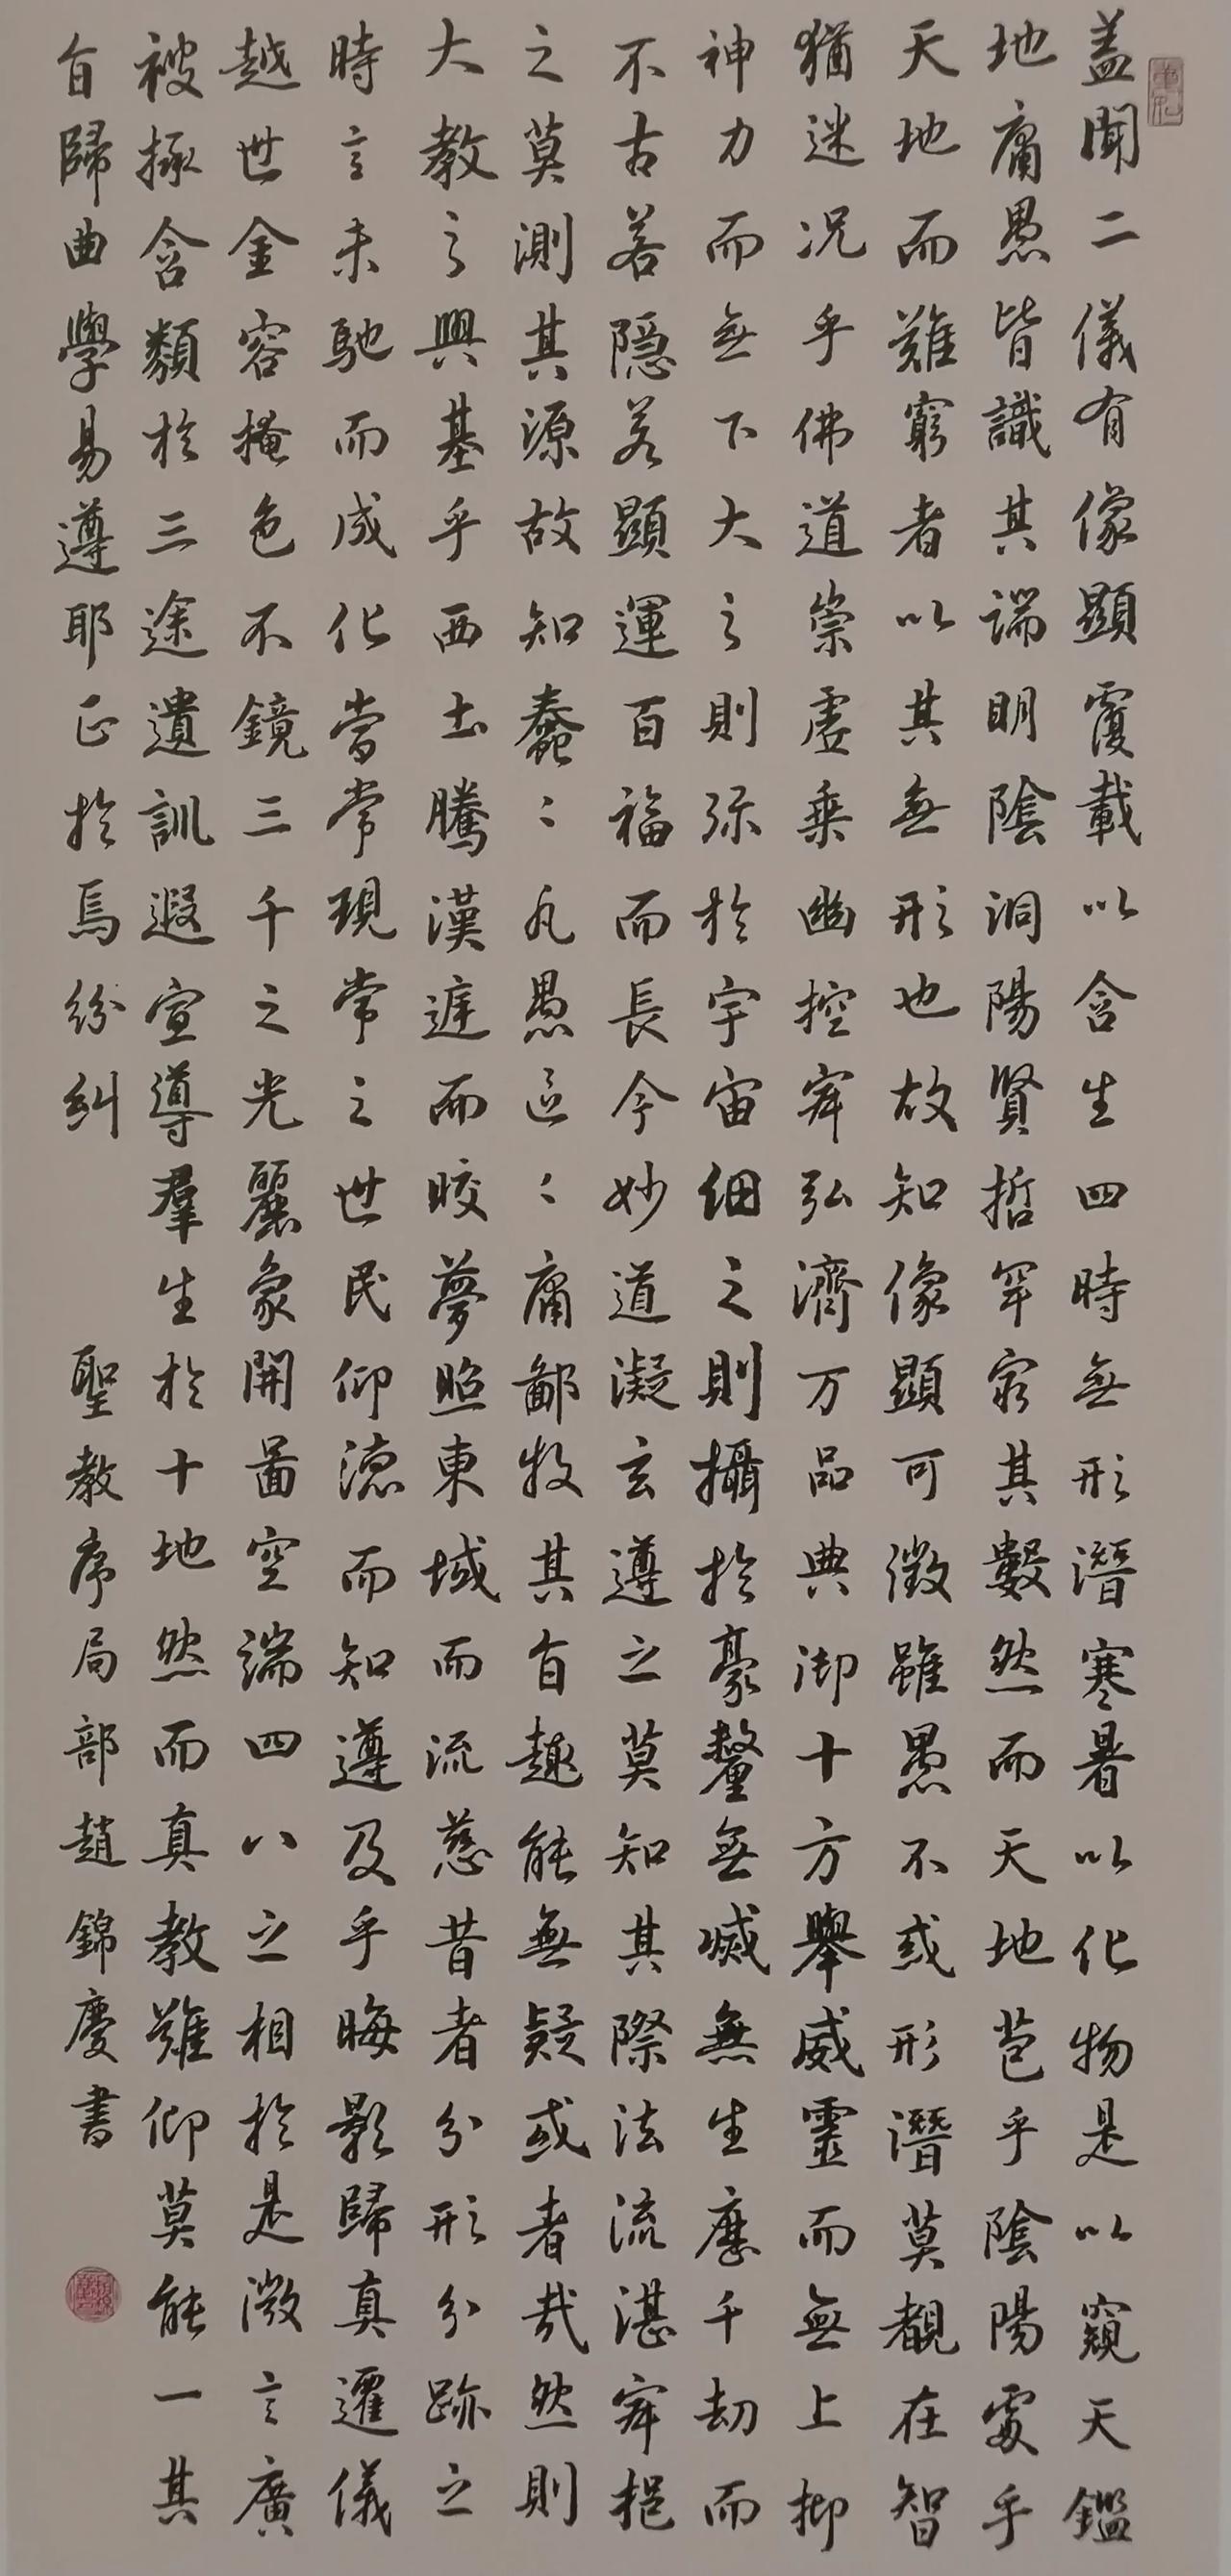 盖聞二儀有像顯覆載以含生四時無形潛寒暑以化物是以窺天鑑
地庸愚皆識其端明陰洞陽賢哲罕窮其數然而天地苞乎陰陽處乎
天地而難窮者以其無形也故知像顯可徵雖愚不或形潛莫覩在智
猶迷况乎佛道崇虛乗幽控寂弘濟万品典御十方舉威靈而無上抑
神力而無下大之則弥於宇宙細之則攝於豪釐無滅無生歷千劫而
不古若隱若顯運百福而長今妙道凝玄遵之莫知其際法流湛寂挹
之莫測其源故知蠢〻凡愚區〻庸鄙投其旨趣能無疑或者哉然則
大教之興基乎西土騰漢遅而皎夢照東域而流慈昔者分形分跡之
時言未馳而成化當常現常之世民仰德而知遵及乎晦影歸真遷儀
越世金容掩色不鏡三千之光麗象開圖空端四八之相於是微言廣
被拯含類於三途遺訓遐宣導羣生於十地然而真教難仰莫能一其
旨歸曲學易遵耶正於焉紛糾 聖教序局部趙錦慶書